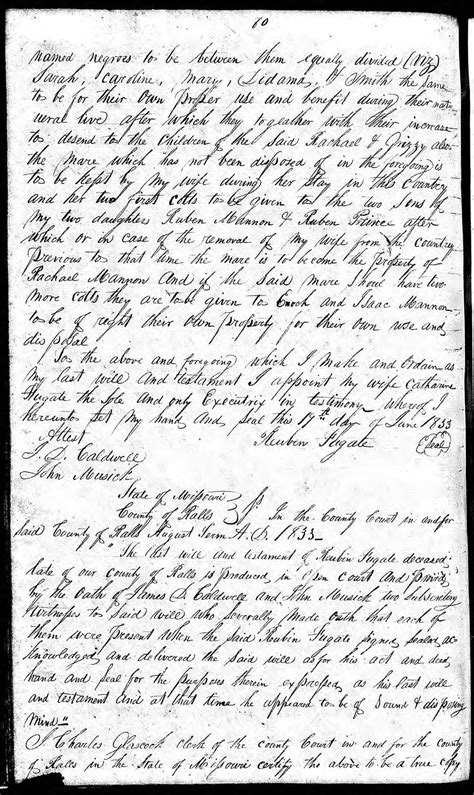 60
named negroes to be between them equally divided (viz)
Sarah, Caroline, Mary, Lidama, & Smith the same
to be for their own proper use and benefit during their nat
ural live after which they togeather with their increase
to desend to the Children of the said Rachael & Grizzy also
the mare which has not been disposed of in the foregoing is
to be kept by my wife during her Stay in this Country
and her two first colts to be given to the two Sons of
my two daughters Ruben Mannon & Ruben Prince after
which or in case of the removal of my wife from the country
previous to that time the mare is to become the property of
Rachael Mannon And if the Said mare Should have two
more colts they are to be given to Enoch and Isaac Mannon
to be of right their own property for their own use and
disposal
So the above and foregoing which I make and Ordain as
my last will and testament I appoint my wife Catharine
Fugate the Sole and only Executrix in testimony whereof I
hereunto Set my hand And Seal this 17th day of June 1833
Attest Reuben Fugate (Seal)
J. D. Caldwell
John Musick
State of Missouri
County of Ralls In the County Court in and for
Said County of Ralls August Term A.D. 1833
"The last will and testament of Reubin Fugate deceased
late of our county of Ralls is produced in Open court And proved
by the Oath of James D. Caldwell and John Musick two subscribing
Witnesses to Said will who Severally made Oath that each of
them were present When the said Reubin Fugate signed sealed ac
knowledged and delivered the said will as for his act and deed
hand and seal for the purposes therein expressed as his last will
and testament And at that time he appeared to be of Sound & disposing
Mind"
I Charles Glascock clerk of the county Court in and for the county
of Ralls in the State of Missouri certify the above to be a true copy